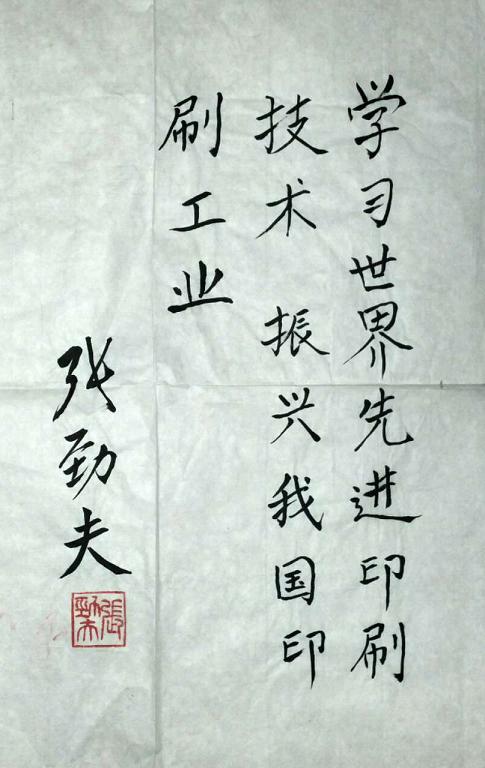 学习世界先进印刷
技术 振兴我国印
刷工业
张劲夫
張勁夫